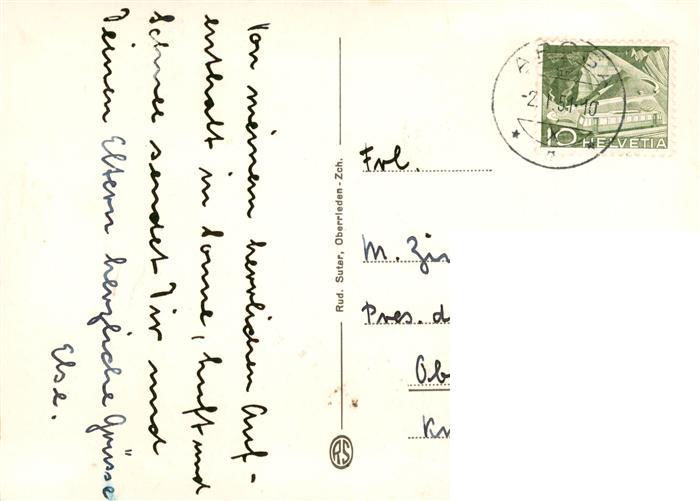 Von meinem herrlichen Auf-
enthalt in Sonne, Luft und
Schnee sendet Dir und
Deinen Eltern herzliche Grüsse
Else.
Rud. Suter, Oberrieden - Zch.
RS
AROSA
-2. 51-10
10 HELVETIA
Frl.
M. Zin
Pres. d
Ob
Kr